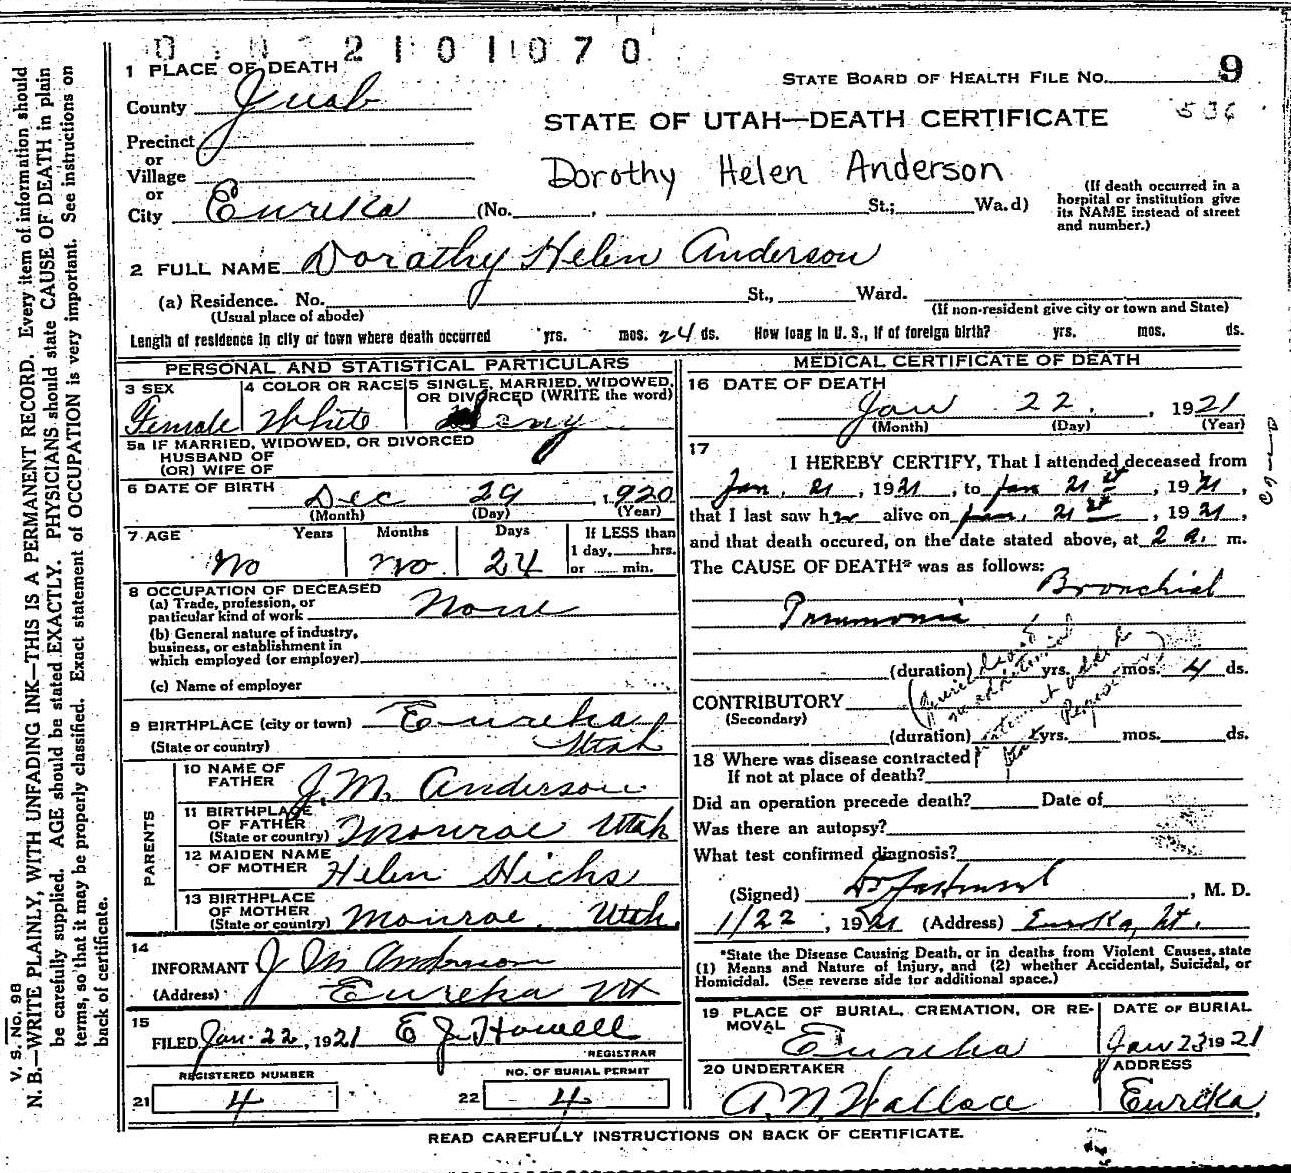 2101070
1 PLACE OF DEATH
STATE BOARD OF HEALTH FILE No. 9
County Juab
STATE OF UTAH—DEATH CERTIFICATE
536
Precinct
or
Village
or
City Eureka (No. , St.; Wa.d)
Dorothy Helen Anderson
(If death occurred in a
hospital or institution give
its NAME instead of street
and number.)
2 FULL NAME Dorathy Helen Anderson
(a) Residence. No. St., Ward.
(Usual place of abode)
(If non-resident give city or town and State)
Length of residence in city or town where death occurred yrs. mos. 24 ds. How long in U. S., if of foreign birth? yrs. mos. ds.
PERSONAL AND STATISTICAL PARTICULARS
3 SEX
Female
4 COLOR OR RACE
White
5 SINGLE, MARRIED, WIDOWED,
OR DIVORCED (WRITE the word)
5a IF MARRIED, WIDOWED, OR DIVORCED
HUSBAND OF
(OR) WIFE OF
6 DATE OF BIRTH Dec 29, 1920
(Month) (Day) (Year)
7 AGE Years Months Days If LESS than
1 day, hrs.
or min.
No no 24
8 OCCUPATION OF DECEASED
(a) Trade, profession, or
particular kind of work None
(b) General nature of industry,
business, or establishment in
which employed (or employer)
(c) Name of employer
9 BIRTHPLACE (city or town) Eureka
(State or country) Utah
PARENTS
10 NAME OF
FATHER J. M. Anderson
11 BIRTHPLACE
OF FATHER
(State or country) Monroe Utah
12 MAIDEN NAME
OF MOTHER Helen Hicks
13 BIRTHPLACE
OF MOTHER
(State or country) Monroe, Utah.
14
INFORMANT J M Anderson
(Address) Eureka Ut
15
FILED Jan. 22, 1921 E J. Howell
REGISTRAR
REGISTERED NUMBER
21 4
NO. OF BURIAL PERMIT
22 4
MEDICAL CERTIFICATE OF DEATH
16 DATE OF DEATH
Jan 22. , 1921
(Month) (Day) (Year)
17
I HEREBY CERTIFY, That I attended deceased from
Jan. 21, 1921, to Jan 21st, 1921,
that I last saw her alive on Jan. 21st, 1921,
and that death occured, on the date stated above, at 2 a. m.
The CAUSE OF DEATH* was as follows:
Bronchial
Pneumonia
(duration) yrs. mos. 4 ds.
CONTRIBUTORY
(Secondary)
(duration) yrs. mos. ds.
18 Where was disease contracted
If not at place of death?
Did an operation precede death? Date of
Was there an autopsy?
What test confirmed diagnosis?
(Signed) , M. D.
1/22, 1921 (Address) Eureka, Ut.
*State the Disease Causing Death, or in deaths from Violent Causes, state
(1) Means and Nature of Injury, and (2) whether Accidental, Suicidal, or
Homicidal. (See reverse side for additional space.)
19 PLACE OF BURIAL, CREMATION, OR RE-
MOVAL
Eureka
DATE OF BURIAL
Jan 23 1921
20 UNDERTAKER
A. N. Wallace
ADDRESS
Eureka,
READ CAREFULLY INSTRUCTIONS ON BACK OF CERTIFICATE.
V. S. No. 98
N. B.—WRITE PLAINLY, WITH UNFADING INK—THIS IS A PERMANENT RECORD. Every item of information should
be carefully supplied. AGE should be stated EXACTLY. PHYSICIANS should state CAUSE OF DEATH in plain
terms, so that it may be properly classified. Exact statement of OCCUPATION is very important. See instructions on
back of certificate.